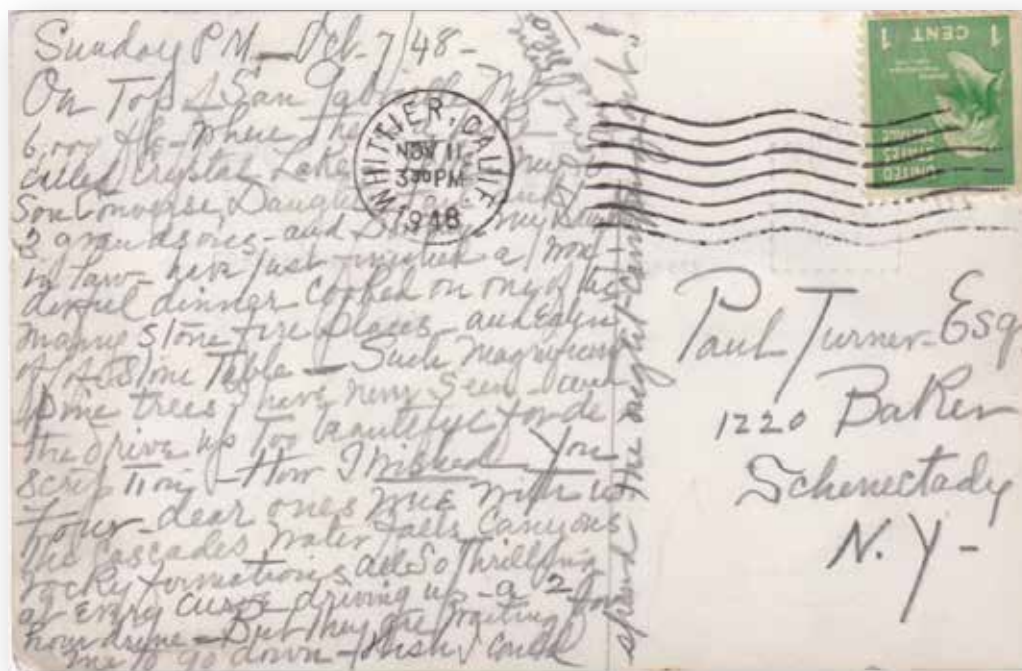 Sunday PM - Oct - 7/48 -
On Top of San Gabrielle Mt
6,000 ft - where the
called Crystal Lake
Son Converse, Daughter
2 grandsons - and my
in law - have just a won-
derful dinner cooked on one of the
many stone fire places - and eaten
of a Stone Table - Such magnificent
pine trees I have never seen - and
the drive up too beautiful for de
scription - How I wished You
four - dear ones were with us
The Cascades Water Falls Canyons
rocky formations all so thrilling
at every curve driving up - a 2
hour drive - But they are waiting for
me to go down - Wish I could
spend the night - camping
WHITTIER, CALIF.
NOV 11
3 30 PM
1948
1 CENT 1
UNITED STATES POSTAGE
Paul Turner - Esq
1220 Baker
Schenectady
N. Y -